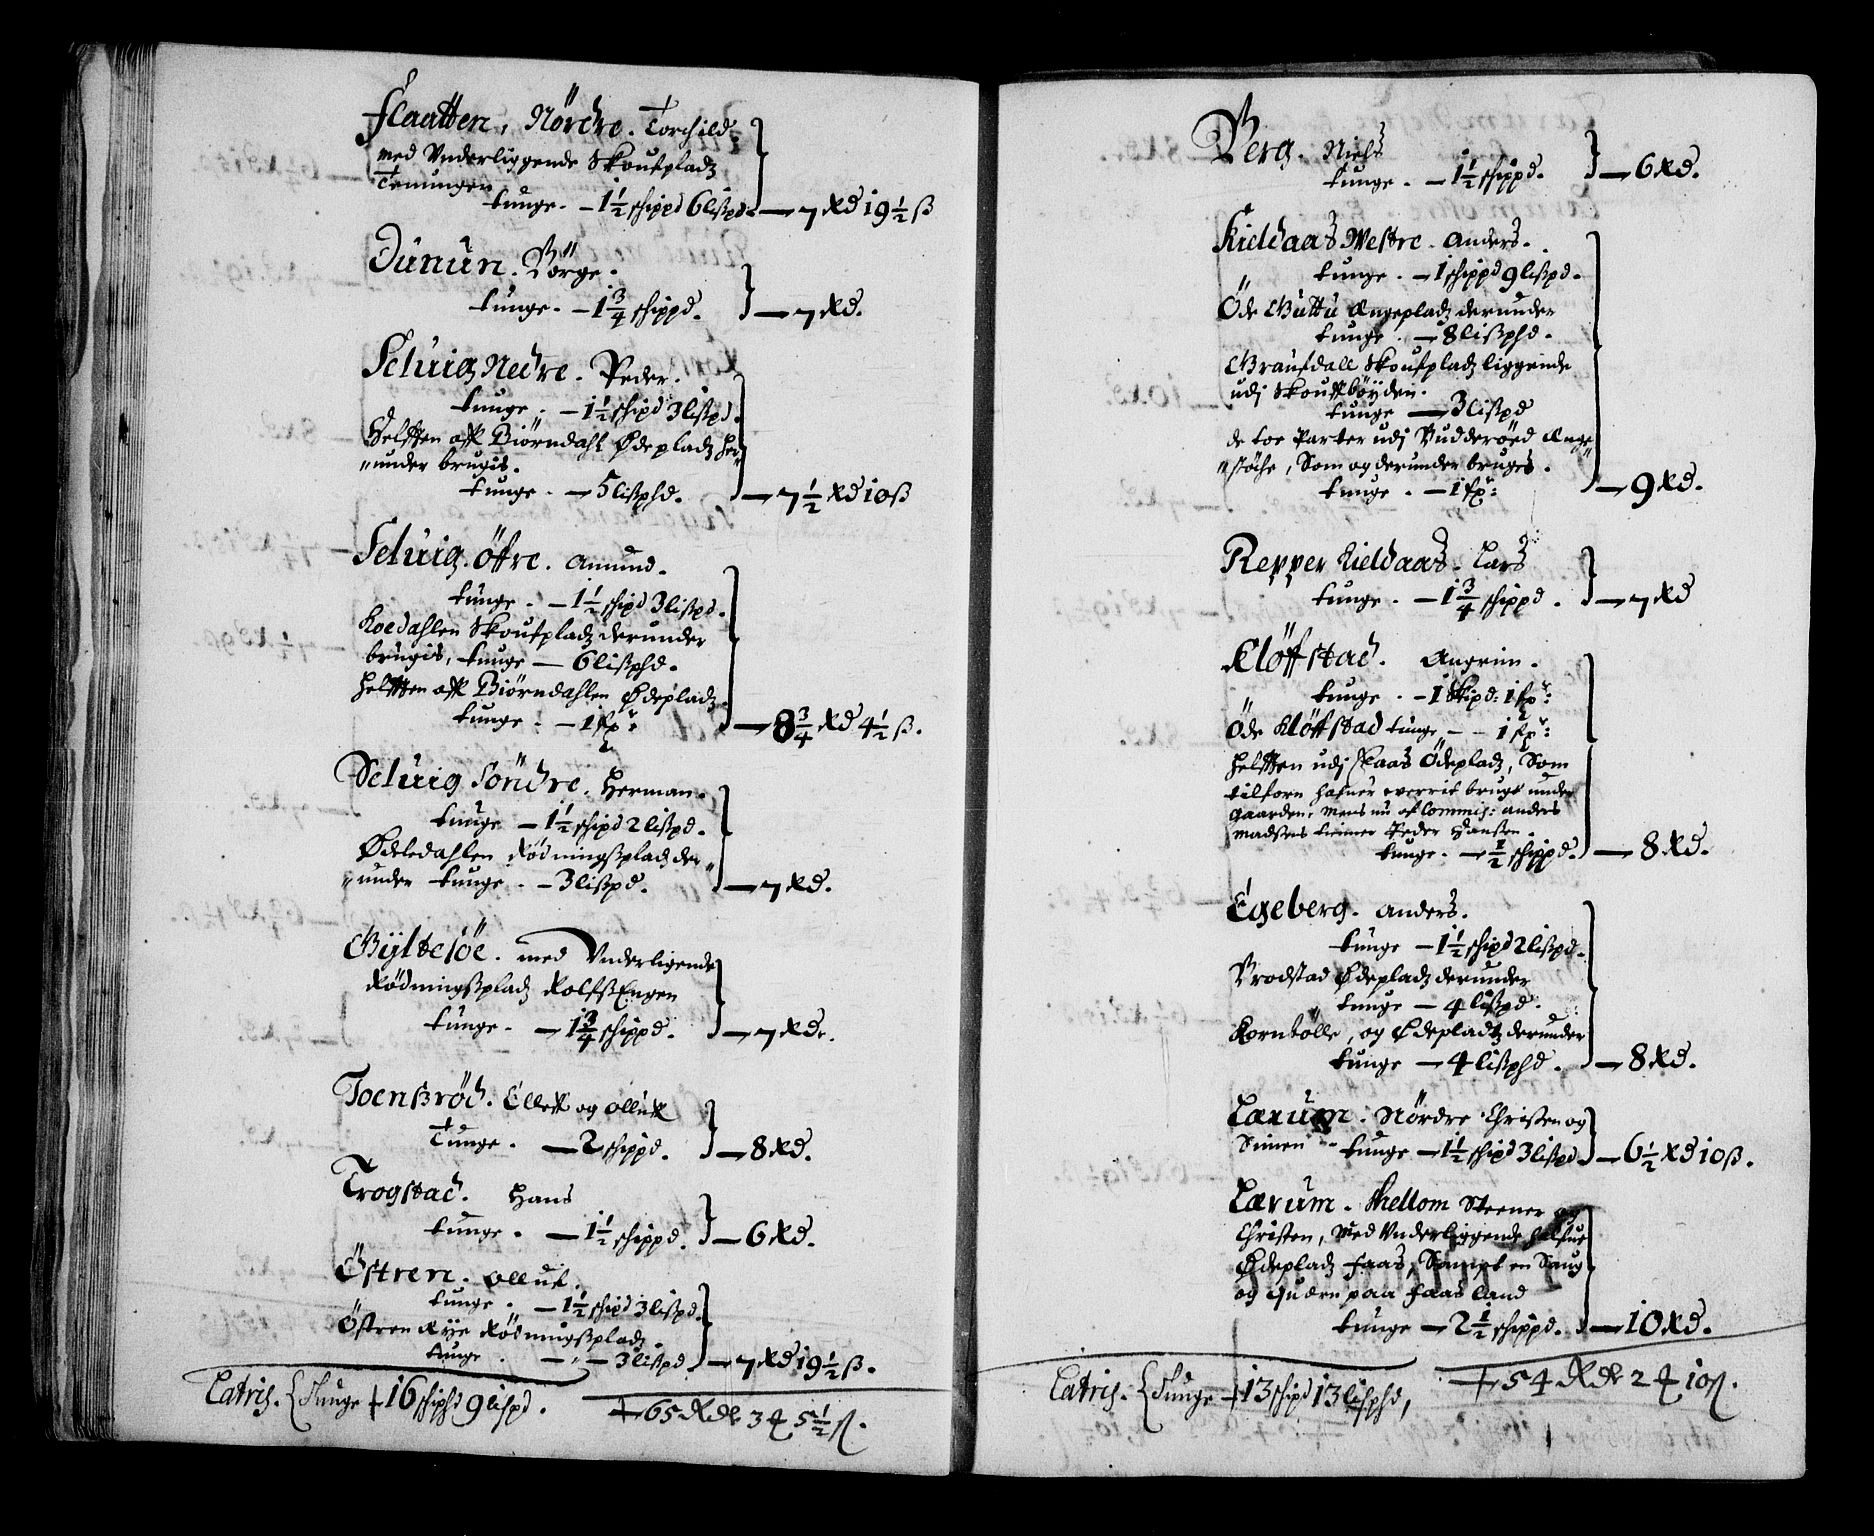 Flaatten, Nördre. Torchild
med Vnderliggende Skoufpladtz
Tenungen
tunge. — 1½ schippd 6 lißpd. — 7 Rd 19½ ß
Dunun. Börge.
tunge. — 1¾ schippd. — 7 Rd.
Seluig Nedre. Peder.
tunge. — 1½ schipd 3 lißpd.
Helfften aff Biörndahl Ödepladtz her
"under brugis.
tunge. — 5 lißphd. — 7½ Rd 10 ß
Seluig. öffre. Amund.
tunge. — 1½ schipd 3 lißpd.
Koedahlen Skoufpladtz derunder
brugis, tunge — 6 lißphd.
helfften aff Biörndahlen Ödepladtz.
tunge. — 1 fz: — 8¾ Rd 4½ ß.
Seluig Söndre. Herman.
tunge — 1½ schipd 2 lißpd.
Ödeledahlen Rödningßpladtz der"
"under tunge. — 3 lißpd. — 7 Rd.
Gyltesöe. med Vnderligende
Rödningßpladtz RolfsEngen
tunge. — 1¾ schippd. — 7 Rd.
Toenßröd. Elleff og Olluff
Tunge. — 2 schippd. — 8 Rd.
Trogstad. Hans
tunge. — 1½ schippd. — 6 Rd.
Östren. Olluf.
tunge. — 1½ schipd 3 lißpd.
Östren Rye Rödningßpladtz.
tunge. — 3 lißpd — 7 Rd 19½ ß.
Latris. Tunge 16 schiphd 9 lispd. 65 Rdr 3 4 5½ ß.
Berg. Niels
tunge. — 1½ schippd. — 6 Rd.
Kieldaas Westre. Anders.
tunge. — 1 schippd 9 lißpd.
Öde Guttu Ængepladtz derunder
tunge. — 8 lißphd.
Graufdall Skoufpladtz liggende
udj Skouffböyden.
tunge — 3 lißpd
de toe Parter udj Budderöed Ænge"
"støche, Som og derunder bruges.
tunge. — 1 fz: — 9 Rd.
Repper Kieldaas. Lars
tunge. — 1¾ schippd. — 7 Rd
Klöffstad. Angrim.
tunge. — 1 Skipd: 1 fz:
Öde Klöffstad tunge — 1 fz:
helfften udj Ödepladtz, Som
tilforn hafuer werrit brugt under
gaarden, mens nu af Commis: Anders
Madsens tienner Peder Hansen.
tunge. — ½ schippd. — 8 Rd.
Egeberg. Anders.
tunge — 1½ schipd 2 lißpd.
Brodstad Ödepladtz derunder
tunge — 4 lißpd.
Korntölle, og Ödepladtz derunder
tunge — 4 lißphd. — 8 Rd.
Lærum. Nördre Christen og
Simen — tunge — 1½ schipd 3 lißpd — 6½ Rd 10 ß.
Lærum. Mellom Steener og
Christen, Med Vnderliggende halfue
Ödepladtz Faas, Sampt en Saug
og Quærn paa Faas land
tunge — 2½ schippd. — 10 Rd.
Latris. Tunge 13 schipd 13 lisphd, 54 Rdr 2 4 10 ß.